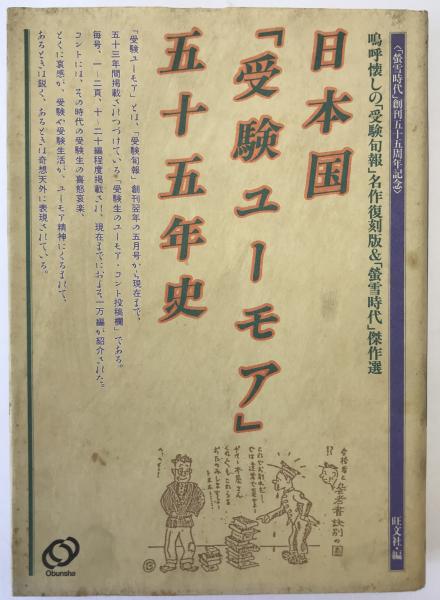 〈「螢雪時代」創刊五十五周年記念〉
嗚呼懐しの「受験旬報」名作復刻版&「螢雪時代」傑作選
旺文社・編
日本国
「受験ユーモア」
五十五年史
「受験ユーモア」とは、「受験旬報」創刊翌年の五月号から現在まで、
五十三年間掲載されつづけている「受験生のユーモア・コント投稿欄」である。
毎号、一～二頁、十～二十編程度掲載され、現在までにおよそ一万編が紹介された。
コントには、その時代の受験生の喜怒哀楽、
とくに哀感が、受験や受験生活が、ユーモア精神にくるまれて、
あるときは鋭く、あるときは奇想天外に表現されている。
合格者と参考書訣別の図
Obunsha